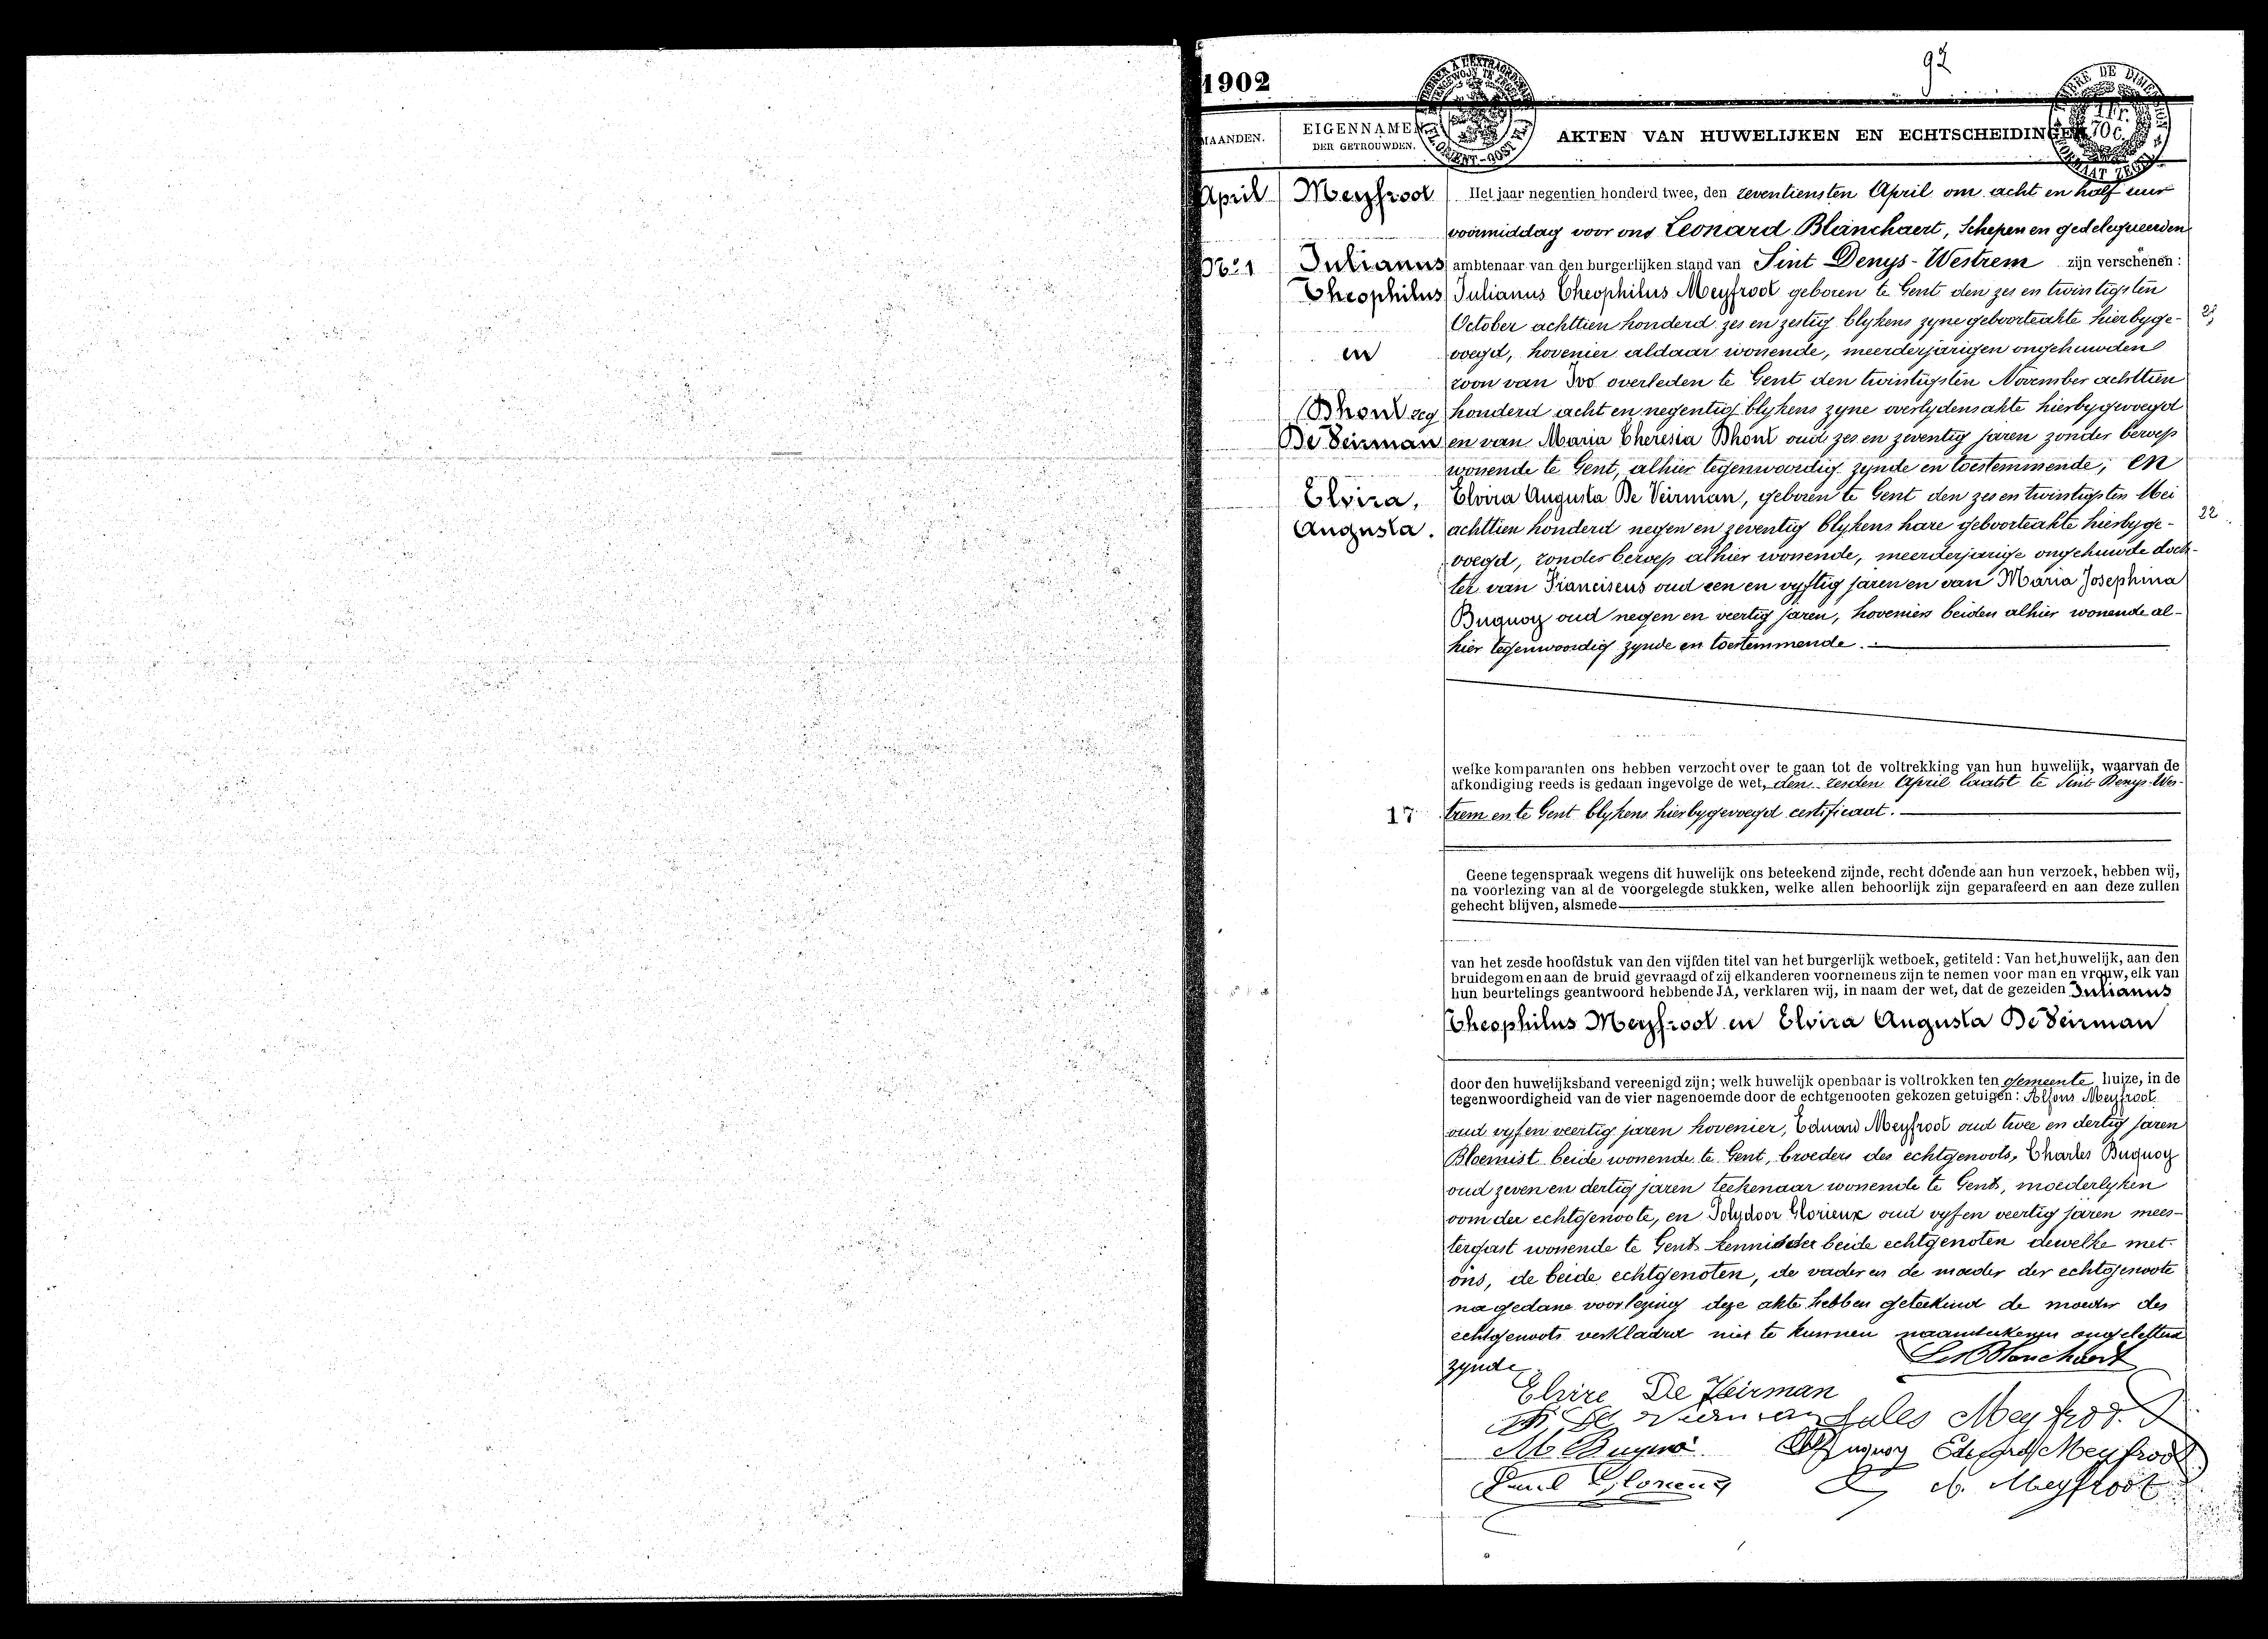 1902
92
MAANDEN.
EIGENNAMEN
DER GETROUWDEN.
AKTEN VAN HUWELIJKEN EN ECHTSCHEIDINGEN
April
Meyfroot
No. 1
Julianus
Theophilus
en
Dhont zeg
De Veirman
Elvira,
Augusta.
Het jaar negentien honderd twee, den zeventiensten April om acht en half uur
voormiddag voor ons Leonard Blanchaert, Schepen en gedelegueerden
ambtenaar van den burgerlijken stand van Sint Denys-Westrem zijn verschenen:
Julianus Theophilus Meyfroot geboren te Gent den zes en twintigsten
October achttien honderd zes en zestig blykens zyne geboorteakte hierbyge-
voegd, hovenier aldaar wonende, meerderjarigen ongehuwden
zoon van Ivo overleden te Gent den twintigsten November achttien
honderd acht en negentig blykens zyne overlydensakte hierbygevoegd
en van Maria Theresia Dhont oud zes en zeventig jaren zonder beroep
wonende te Gent, alhier tegenwoordig zynde en toestemmende; en
Elvira Augusta De Veirman, geboren te Gent den zes en twintigsten Mei
achttien honderd negen en zeventig blykens hare geboorteakte hierbyge-
22
voegd, zonder beroep alhier wonende, meerderjarige ongehuwde doch-
ter van Franciscus oud een en vyftig jaren en van Maria Josephina
Buquoy oud negen en veertig jaren, hoveniers beiden alhier wonende al-
hier tegenwoordig zynde en toestemmende.
welke komparanten ons hebben verzocht over te gaan tot de voltrekking van hun huwelijk, waarvan de
afkondiging reeds is gedaan ingevolge de wet, den zesden April laatst te Sint Denys-Wes-
17
trem en te Gent blykens hierbygevoegd certificaat.
Geene tegenspraak wegens dit huwelijk ons beteekend zijnde, recht doende aan hun verzoek, hebben wij,
na voorlezing van al de voorgelegde stukken, welke allen behoorlijk zijn geparafeerd en aan deze zullen
gehecht blijven, alsmede
van het zesde hoofdstuk van den vijfden titel van het burgerlijk wetboek, getiteld: Van het huwelijk, aan den
bruidegom en aan de bruid gevraagd of zij elkanderen voornemens zijn te nemen voor man en vrouw, elk van
hun beurtelings geantwoord hebbende JA, verklaren wij, in naam der wet, dat de gezeiden Julianus
Theophilus Meyfroot en Elvira Augusta De Veirman
door den huwelijksband vereenigd zijn; welk huwelijk openbaar is voltrokken ten gemeente huize, in de
tegenwoordigheid van de vier nagenoemde door de echtgenooten gekozen getuigen: Alfons Meyfroot
oud vyf en veertig jaren hovenier, Eduard Meyfroot oud twee en dertig jaren
Bloemist beide wonende te Gent, broeders des echtgenoots, Charles Buquoy
oud zeven en dertig jaren teekenaar wonende te Gent, moederlyken
oom der echtgenoote, en Polydoor Glorieux oud vyf en veertig jaren mees-
tergast wonende te Gent kennis der beide echtgenoten dewelke met
ons, de beide echtgenoten, de vader en de moeder der echtgenoote
na gedane voorlezing deze akte hebben geteekend de moeder des
echtgenoots verklaard niet te kunnen naamteekenen ongeletterd
zynde.
Leo Blanchaert
Elvire De Veirman
Jules Meyfroot
M. Buquoi
Buquoy
Meyfroot
A. Meyfroot